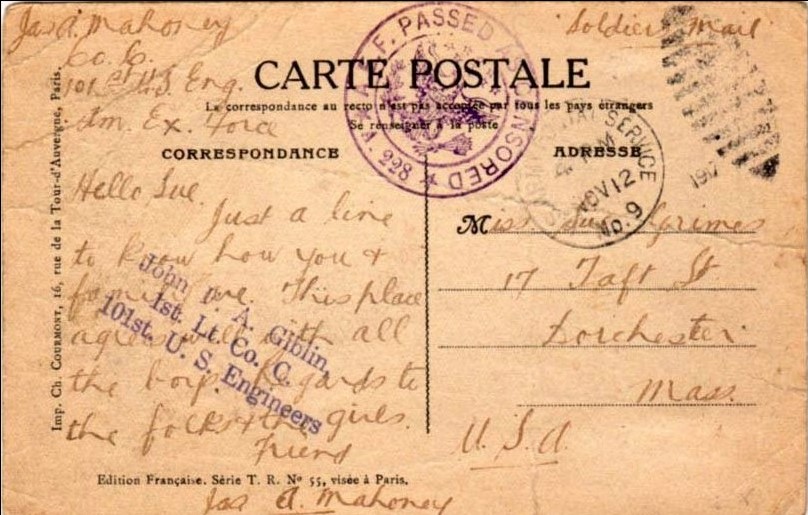 Jas A. Mahoney
Co. C.
101st U.S. Eng.
Am. Ex. Force
Soldiers Mail
A.E.F. PASSED AS CENSORED ★
228
CARTE POSTALE
La correspondance au recto n'est pas acceptée par tous les pays étrangers
Se renseigner à la poste
CORRESPONDANCE
ADRESSE
SERVICE
NOV 12
1917
No. 9
Hello Sue.
Just a line
to know how you &
family are. This place
agrees well with all
the boys. Regards to
the folks & the girls.
Friend
Jas A. Mahoney
John A. Giblin,
1st. Lt. Co. C.
101st. U. S. Engineers
Miss Sue Grimes
17 Taft St
Dorchester
Mass.
U.S.A.
Imp. Ch. Courmont, 16, rue de la Tour-d'Auvergne, Paris.
Edition Française. Série T. R. No 55, visée à Paris.